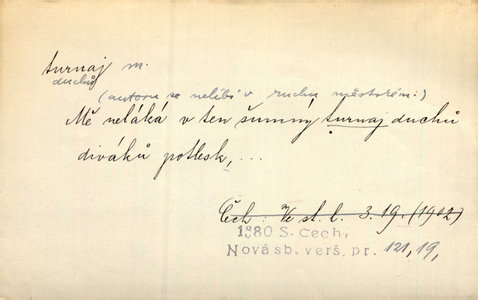 turnaj m.
duchů
(autoru se nelíbí v ruchu městském:)
Mě neláká v ten šumný turnaj duchů
diváků potlesk, ...
Čech: Ve st. l. 3.19. (1902)
1880 S. Čech,
Nová sb. verš. pr. 121, 19,